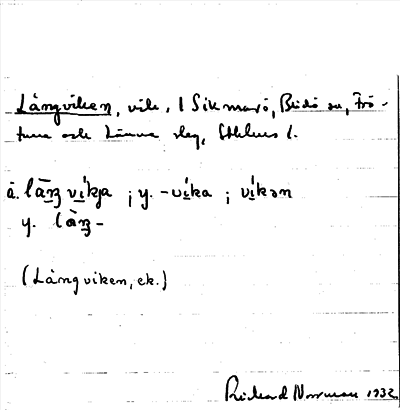 Långviken, vik, i Sikmarö, Blidö sn, Frö-
tuna och Länna slg, Sthlms l.
ä. lāŋ vikja ; y. -vika ; vikən
y. làŋ-
(Långviken, ek.)
Rickard Norrman 1932.